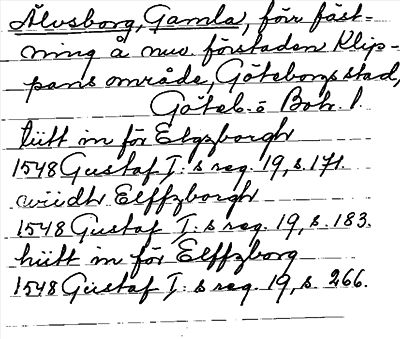 Älvsborg, Gamla, förr fäst-
ning å nuv. förstaden Klip-
pans område, Göteborgs stad,
Göteb. o Boh. l.
hiitt in för Elgzborgh
1548 Gustaf I:s reg. 19, s. 171.
wiidh Elffzborgh
1548 Gustaf I:s reg. 19, s. 183.
hiitt in för Elffzborg
1548 Gustaf I:s reg. 19, s. 266.